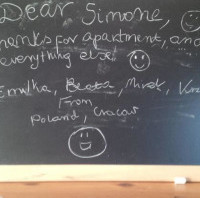 Dear Simone,
hanks for apartment, and
everything else
Emilka, Beata, Mirek,
From
Poland, Cracow